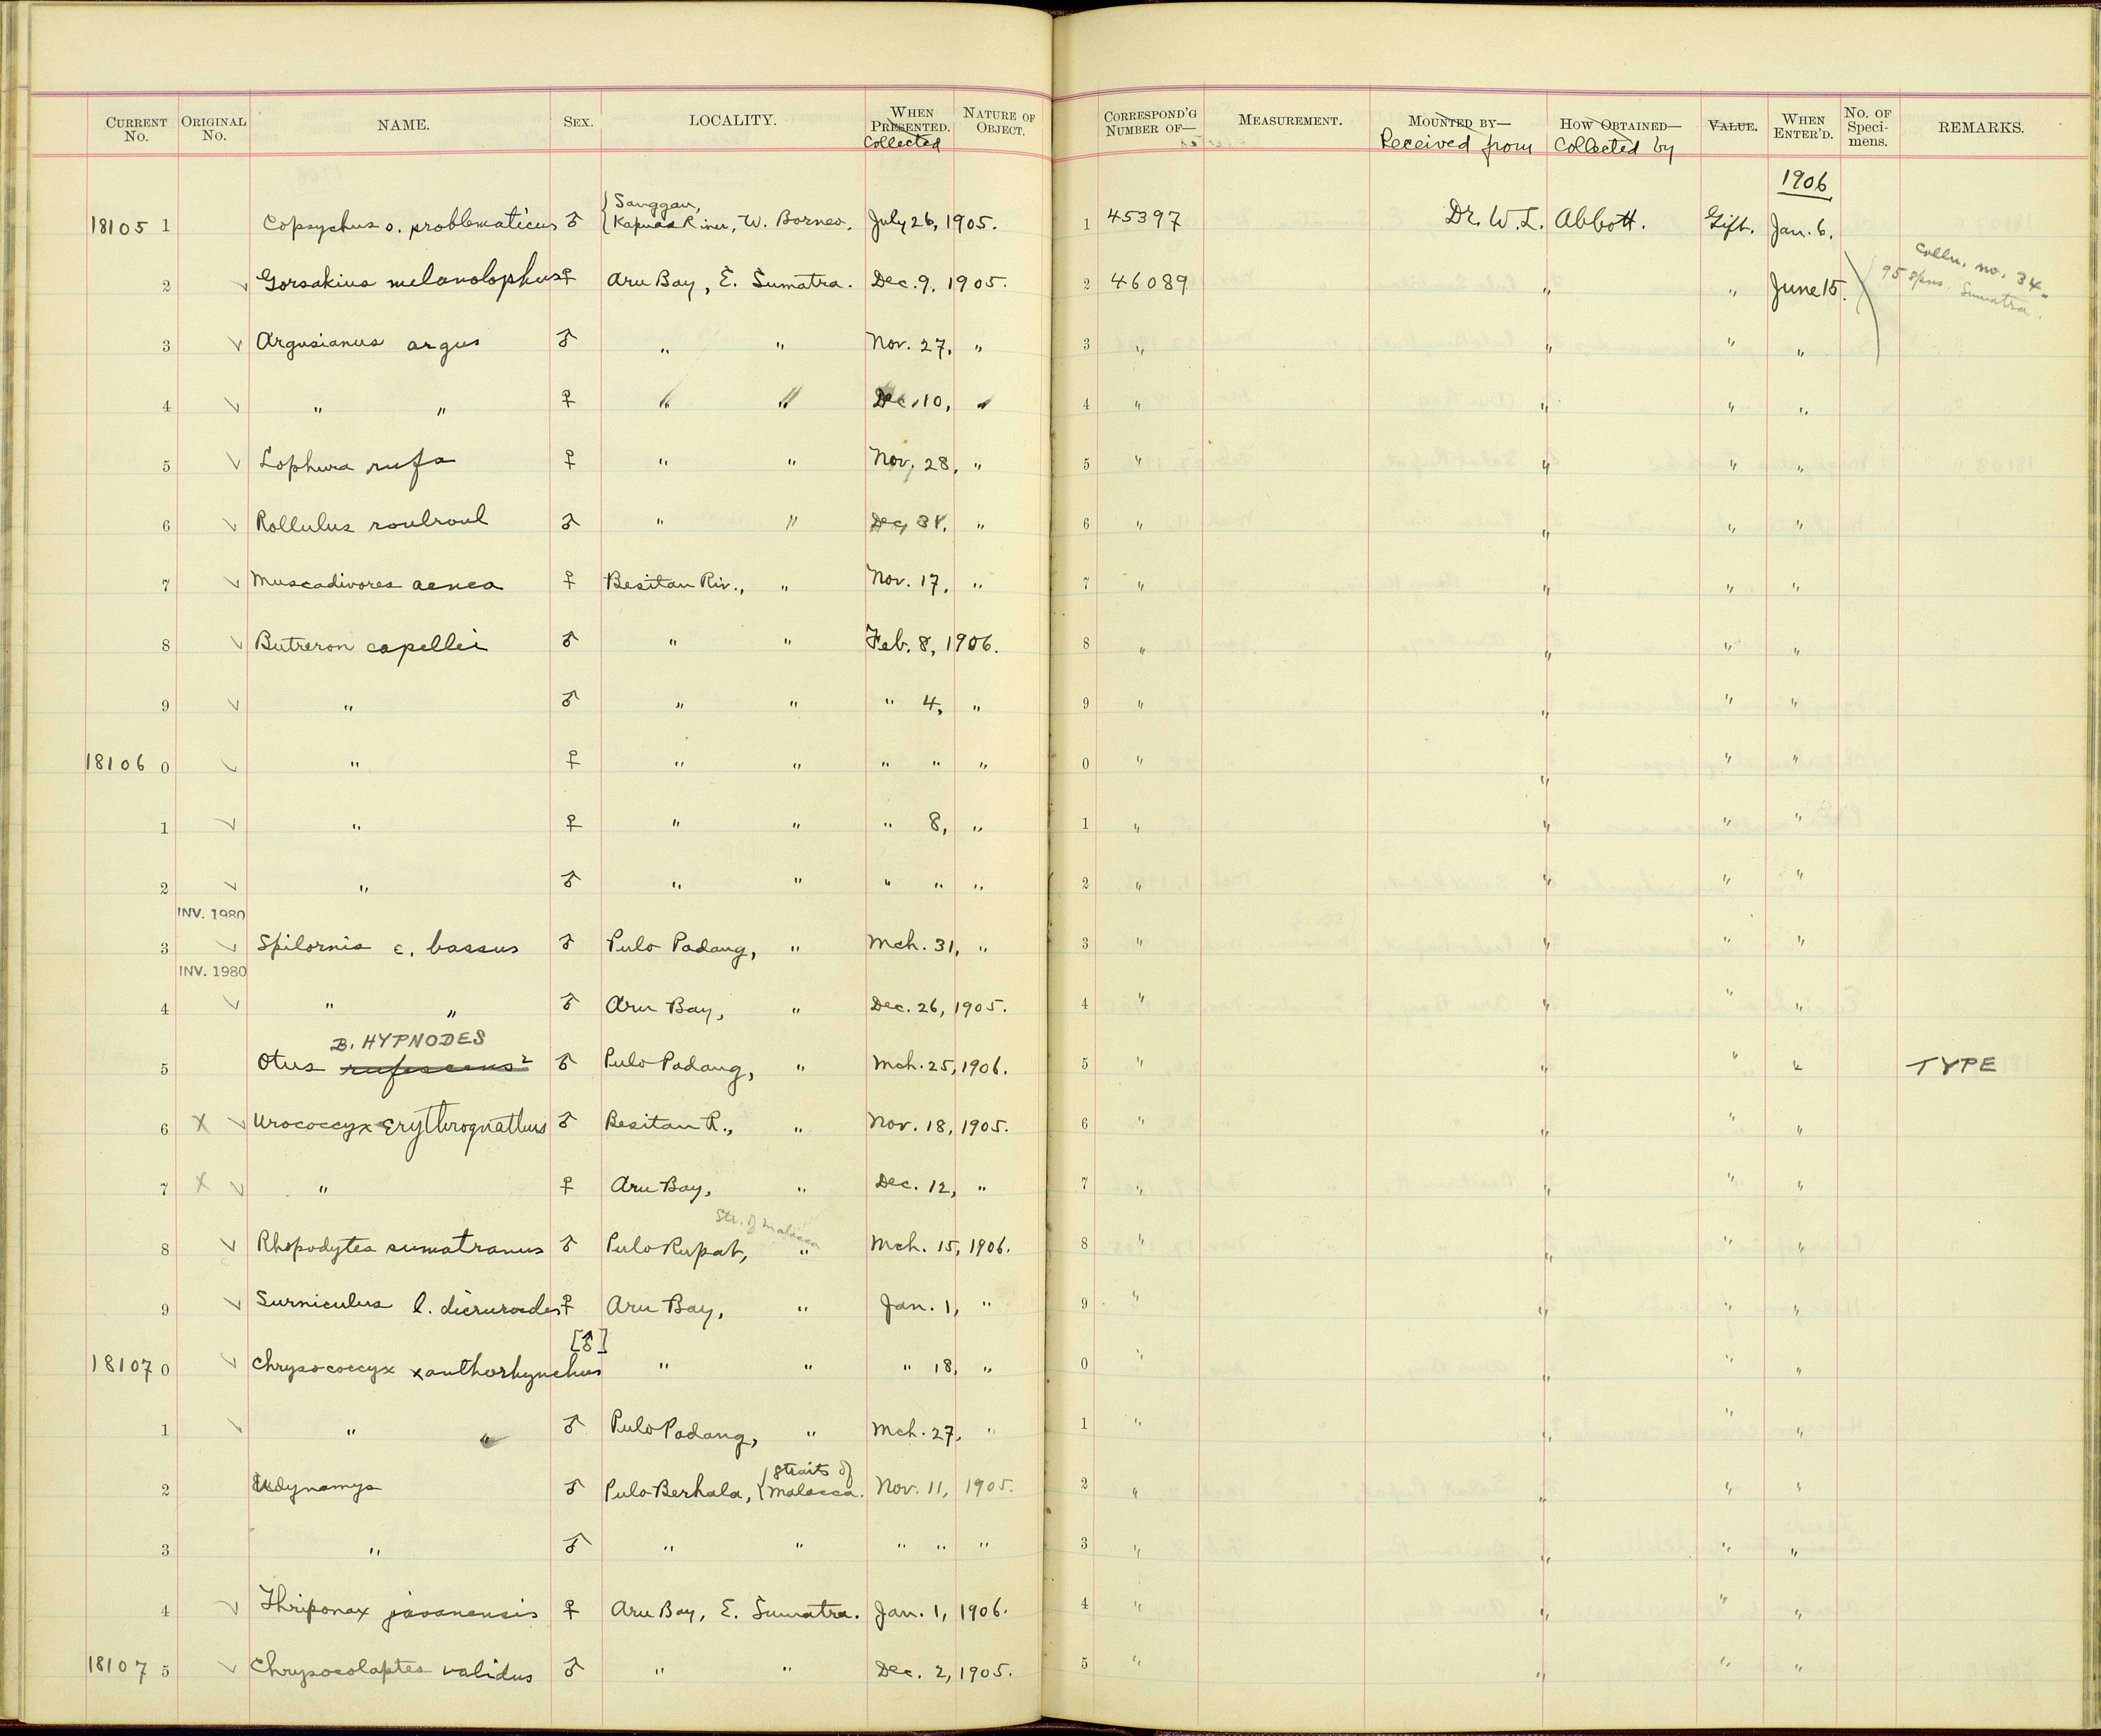 CURRENT No. ORIGINAL No. NAME. SEX. LOCALITY. WHEN PRESENTED. Collected NATURE OF OBJECT. CORRESPOND'G NUMBER OF— MEASUREMENT. MOUNTED BY— Received from HOW OBTAINED— Collected by VALUE. WHEN ENTER'D. No. OF Speci- mens. REMARKS.
1906
18105 1 Copsychus s. problematicus ♂ { Sanggau, Kapuas River, W. Borneo. July 26, 1905. 1 45397 Dr. W. L. Abbott. Gift. Jan. 6.
2 ✓ Gorsakius melanolophus ♀ Aru Bay, E. Sumatra. Dec. 9, 1905. 2 46089 " " June 15.
Colln. no. 34-
95 spns. Sumatra.
3 ✓ Argusianus argus ♂ " " Nov. 27, " 3 " " " "
4 ✓ " " ♀ " " Dec. 10, " 4 " " " "
5 ✓ Lophura rufa ♀ " " Nov. 28, " 5 " " " "
6 ✓ Rollulus roulroul ♂ " " Dec. " 6 " " " "
7 ✓ Muscadivores aenea ♀ Besitan Riv., " Nov. 17, " 7 " " " "
8 ✓ Butreron capellei ♂ " " Feb. 8, 1906. 8 " " " "
9 ✓ " ♂ " " " 4, " 9 " " " "
18106 0 ✓ " ♀ " " " " " 0 " " " "
1 ✓ " ♀ " " " 8, " 1 " " " "
2 ✓ " ♂ " " " " " 2 " " " "
INV. 1980
3 ✓ Spilornis c. bassus ♂ Pulo Padang, " Mch. 31, " 3 " " " "
INV. 1980
4 ✓ " " ♂ Aru Bay, " Dec. 26, 1905. 4 " " " "
B. HYPNODES
5 Otus rufescens ² ♂ Pulo Padang, " Mch. 25, 1906. 5 " " " " TYPE
6 X ✓ Urococcyx Erythrognathus ♂ Besitan R., " Nov. 18, 1905. 6 " " " "
7 X ✓ " ♀ Aru Bay, " Dec. 12, " 7 " " " "
Str. of Malacca
8 ✓ Rhopodytes sumatranus ♂ Pulo Rupat, " Mch. 15, 1906. 8 " " " "
9 ✓ Surniculus l. dicruroides ♀ Aru Bay, " Jan. 1, " 9 " " " "
[♂]
18107 0 ✓ Chrysococcyx xanthorhynchus " " " 18, " 0 " " " "
1 ✓ " " ♂ Pulo Padang, " Mch. 27, " 1 " " " "
2 Eudynamys ♂ Pulo Berhala, { Straits of Malacca. Nov. 11, 1905. 2 " " " "
3 " ♂ " " " " " 3 " " " "
4 ✓ Thriponax javanensis ♀ Aru Bay, E. Sumatra. Jan. 1, 1906. 4 " " " "
18107 5 ✓ Chrysocolaptes validus ♂ " " Dec. 2, 1905. 5 " " " "